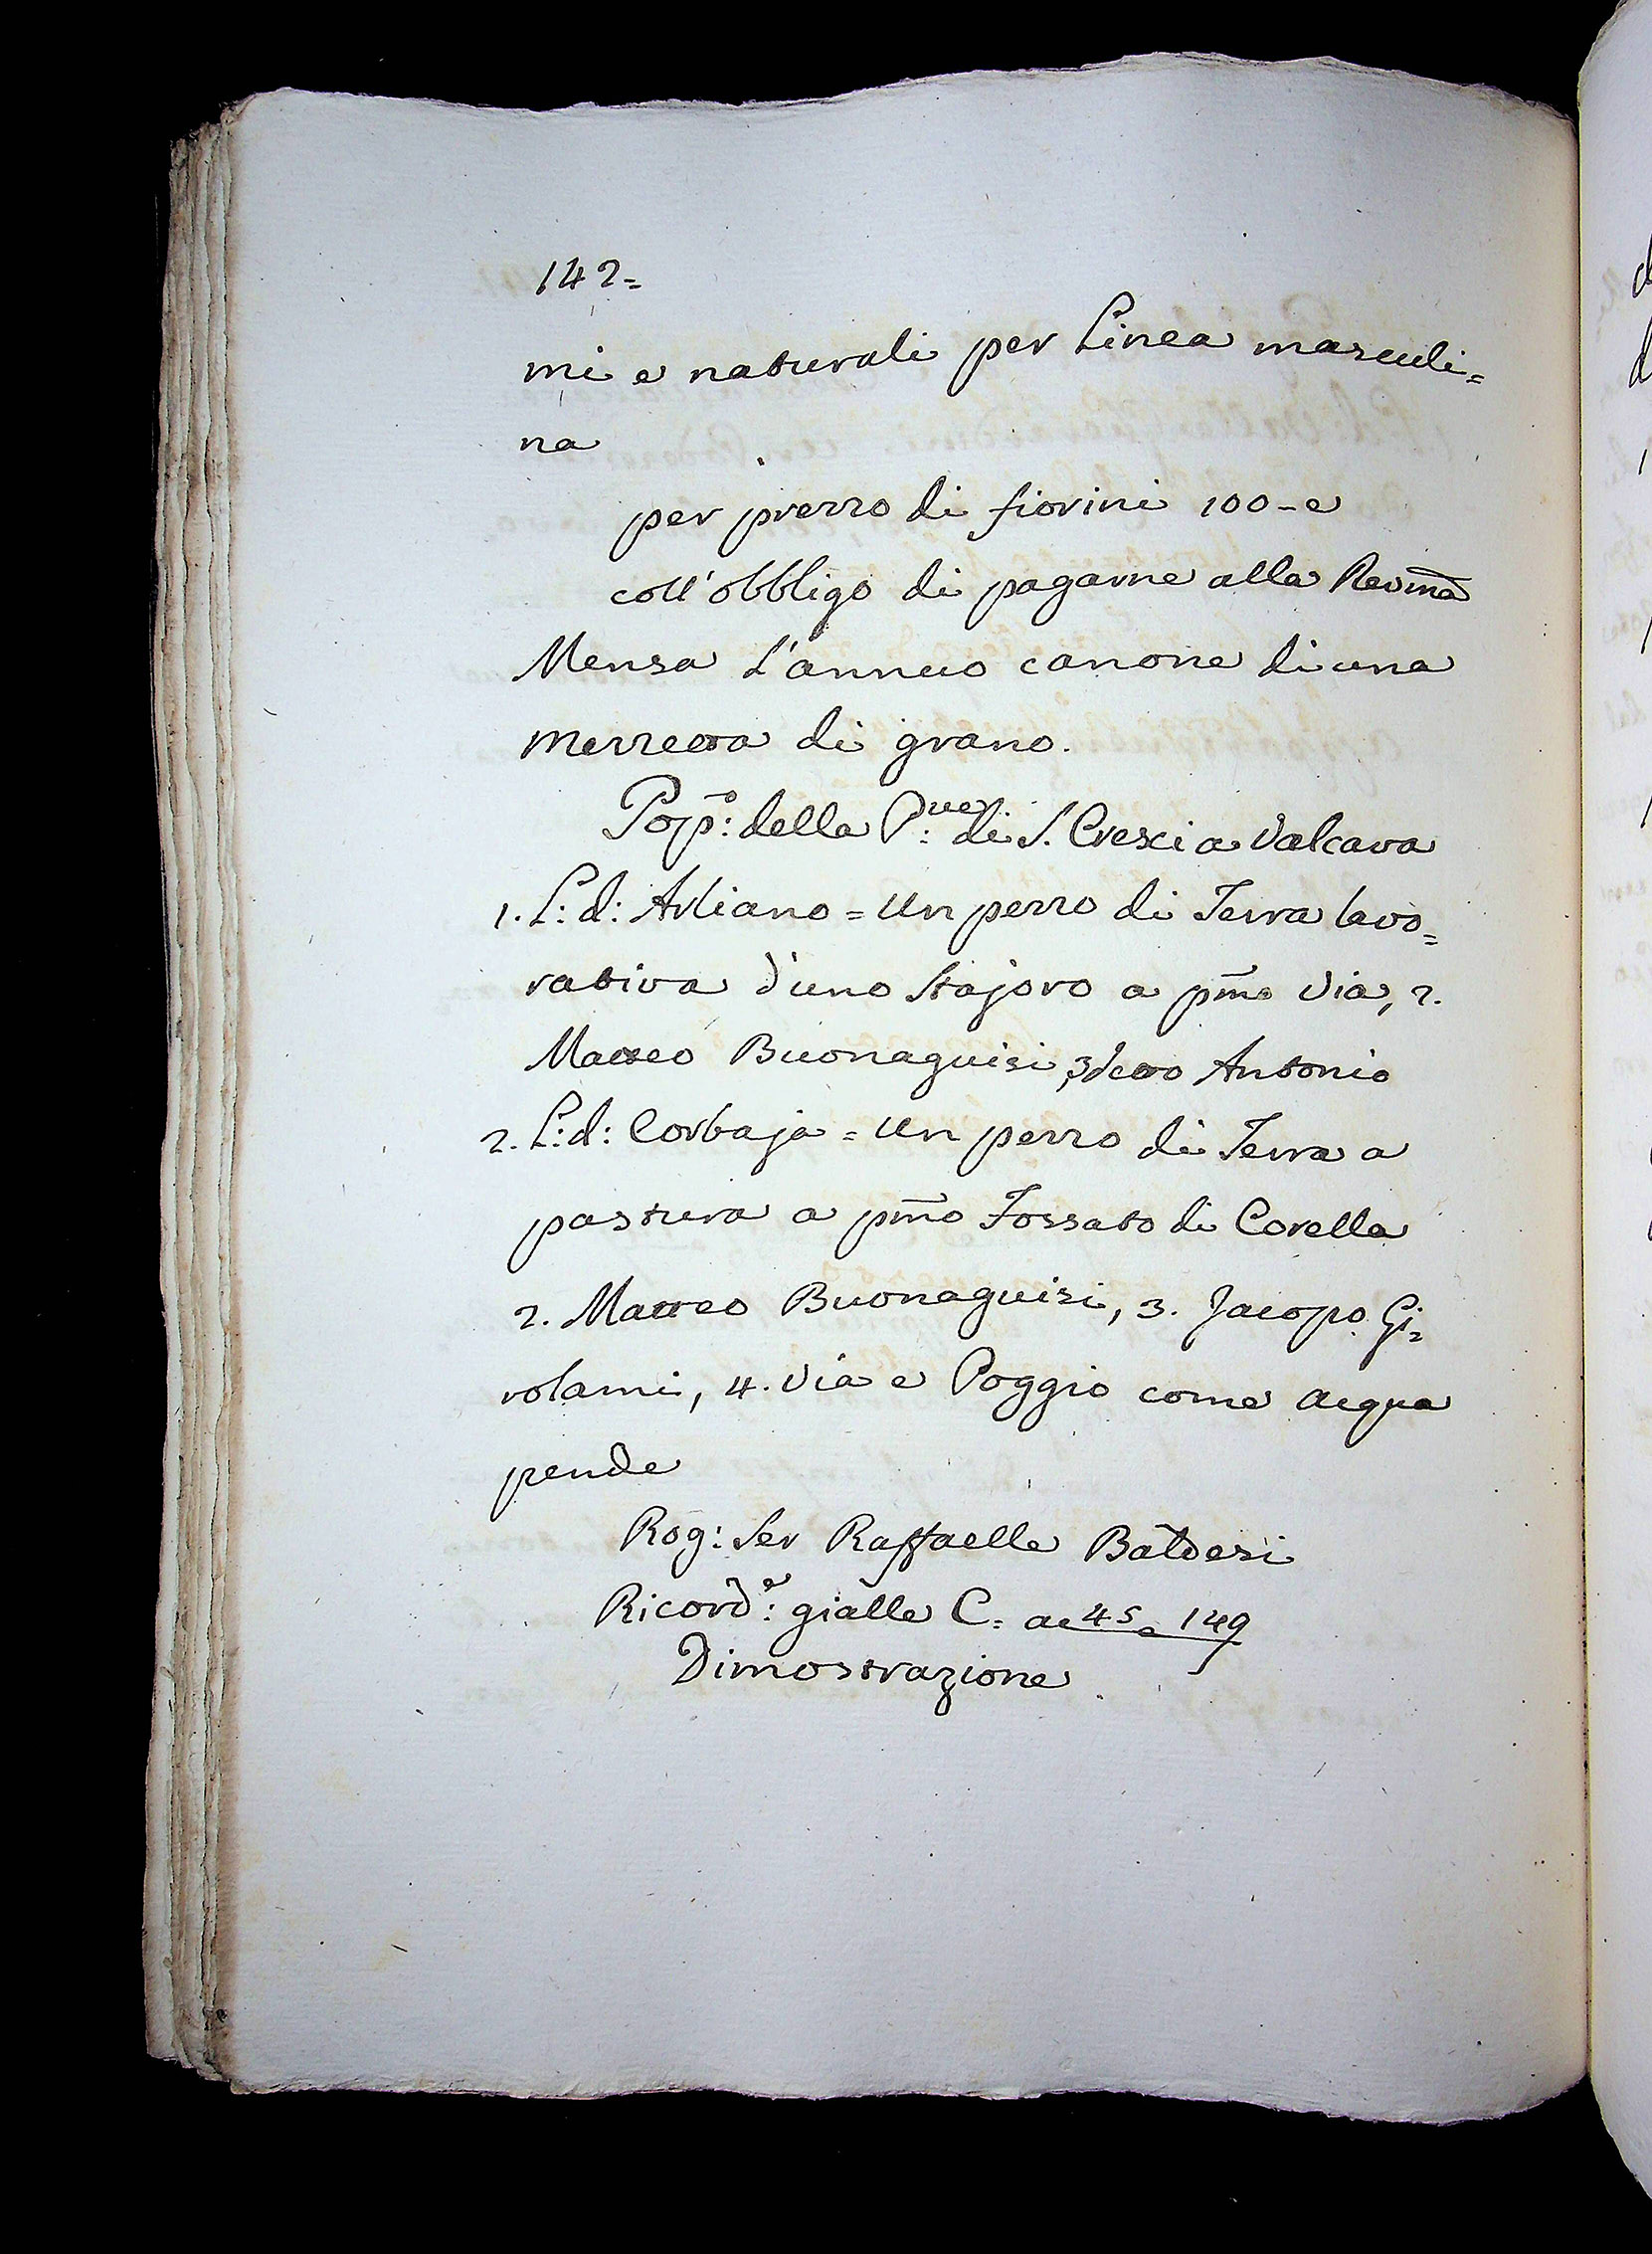 142=
mi e naturali per Linea masculi=
na
per prezzo di fiorini 100-e
coll'obbligo di pagarne alla Revma
Mensa l'annuo canone di una
mezzetta di grano.
Popo: della P:ve di S. Cresci a Valcava
1. L: d: Arliano = Un pezzo di Terra lavo=
rativa d'uno Stajoro a pmo Via, 2.
Matteo Buonaguisi, 3 detto Antonio
2. L: d: Corbaja = Un pezzo di Terra a
pastura a pmo Fossato di Corella
2. Matteo Buonaguisi, 3. Jacopo Gi=
rolami, 4. Via e Poggio come acqua
pende
Rog: Ser Raffaelle Baldesi
Ricord:e gialle C: ac 45 e 149
Dimostrazione